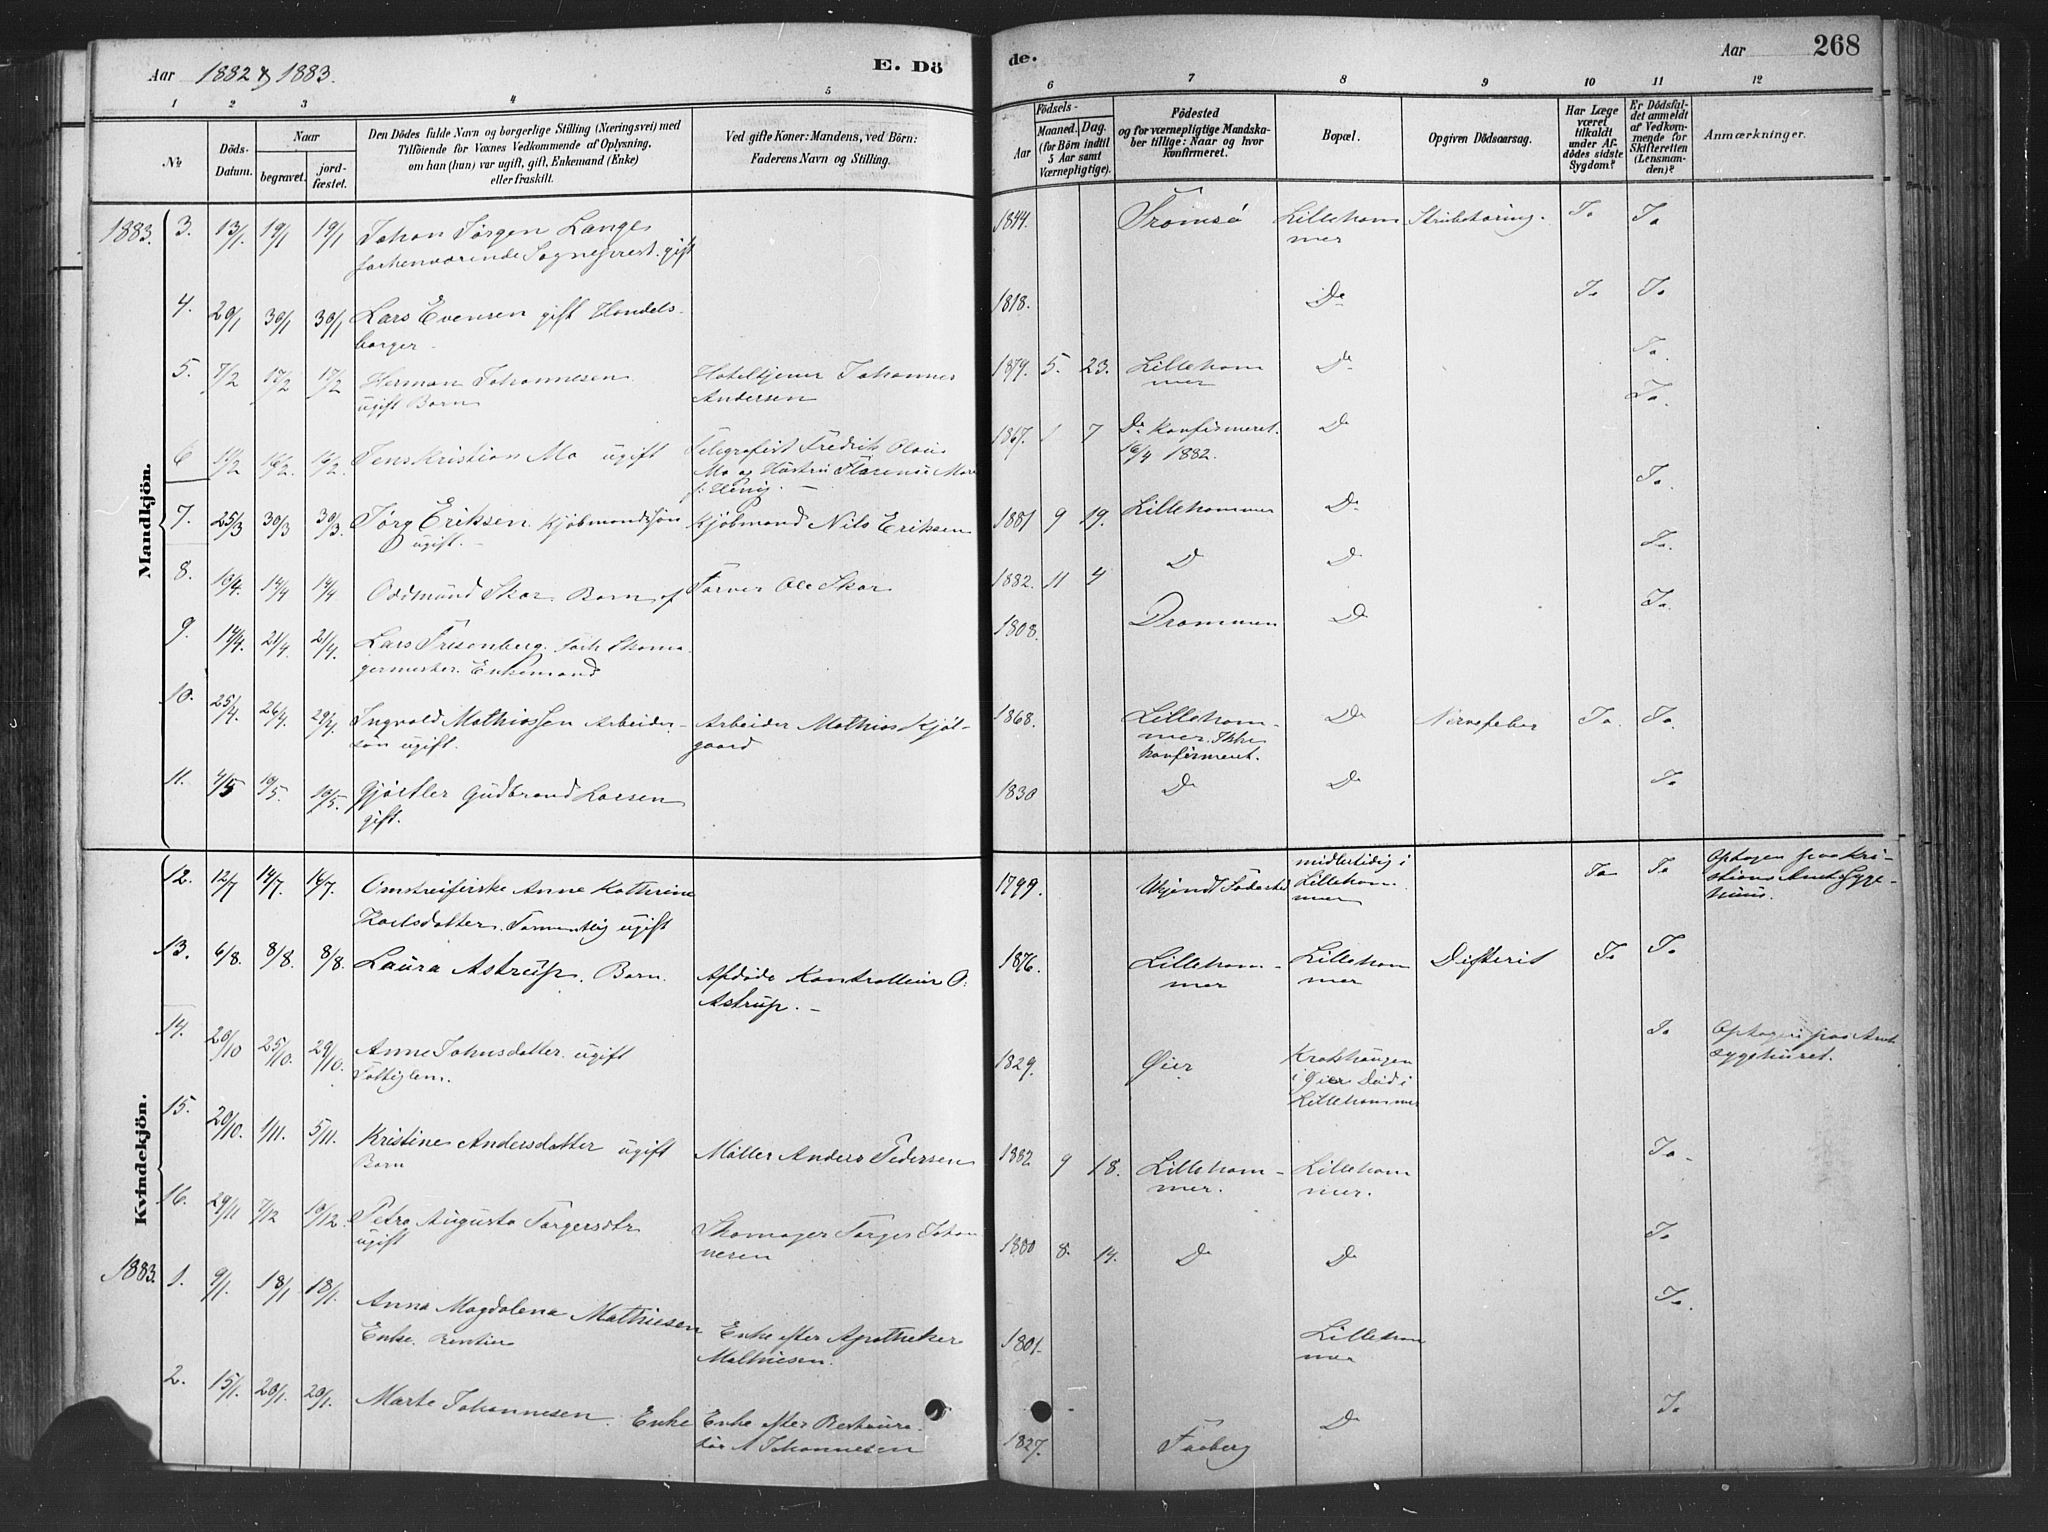 Aar 1882 & 1883.
E. Dö
de.
Aar
268
1 2 3 4 5 6 7 8 9 10 11 12
No
Döds-
Datum.
Naar
begravet.
jord-
fæstet.
Den Dödes fulde Navn og borgerlige Stilling (Næringsvei) med
Tilföiende for Voxnes Vedkommende af Oplysning,
om han (hun) var ugift, gift, Enkemand (Enke)
eller fraskilt.
Ved gifte Koner: Mandens, ved Börn:
Faderens Navn og Stilling.
Födsels-
Aar
Maaned. Dag.
(for Börn indtil
5 Aar samt
Værnepligtige).
Födested
og for værnepligtige Mandska-
ber tillige: Naar og hvor
konfirmeret.
Bopæl.
Opgiven Dödsaarsag.
Har Læge
været
tilkaldt
under Af-
dödes sidste
Sygdom?
Er Dödsfal-
det anmeldt
af Vedkom-
mende for
Skifteretten
(Lensman-
den)?
Anmærkninger.
Mandkjön.
1883. 3. 13/1. 19/1 19/1 Johan Jørgen Lange
forhenværende Sognepræst. gift
1844. Tromsø Lilleham
mer
Strubehoring. Ja Ja
4. 29/1 30/1 30/1 Lars Evensen gift Handels-
borger
1818. Do Ja Ja
5. 7/2 17/2 17/2 Herman Johannesen
ugift Barn
Hoteltjener Johannes
Andersen
1879. 5. 23. Lilleham
mer
Do Ja.
6 16/2. 16/2. Jens Kristian Mo ugift
Telegrafist Fredrik Olaus
Mo og Hustru
1867. 1 7 Do Konfirmeret.
16/4 1882.
Do Ja.
7. 25/3 30/3 30/3. Jørg Eriksen Kjøbmandssøn
ugift.
Kjøbmand Nils Eriksen
1881 9 19. Lillehammer Do Ja.
8. 10/4. 14/4 14/4 Oddmund Skar. Barn af
Farver Ole Skar
1882. 11 4 Do Do Ja.
9. 14/4. 21/4 21/4. Lars Frisenberg. forh Skoma-
germester. Enkemand
1808. Drammen Do Ja.
10. 25/4. 26/4. 29/4. Ingvald Mathiassen Arbeider-
søn ugift.
Arbeider Mathias Kjøl-
gaard
1868. Lilleham-
mer. Ikke
konfirmeret.
Do Nervefeber Ja. Ja.
11. 4/5 10/5. 10/5. Gjørtler Gudbrand Larsen
gift.
1830 Do Do Ja
Kvindekjön.
12. 12/7 14/7. 14/7. Omstreiferske Anne Kathrine
Karlsdatter. Formentlig ugift
1799. Ukjendt Fødested
midlertidig i
Lilleham-
mer
Ja Ja Optagen paa Kri-
stians Amts Syge-
huus.
13. 6/8. 8/8. 8/8. Laura Astrup. Barn.
Afdøde Kontrolleur O.
Astrup. —
1876. Lilleham-
mer
Lilleham
mer
Difterit Ja Ja
14. 20/10 25/10. 29/10. Anne Johnsdatter. ugift
Fattiglem.
1829. Øier
Krakshaugen
i Øier Død i
Lillehammer
Ja Optagen paa Amt
sygehuset.
15. 20/10. 1/11. 5/11. Kristine Andersdatter ugift
Barn
Møller Anders Pedersen
1882 9 18. Lilleham-
mer.
Lilleham
mer.
Ja.
16. 29/11 7/12 10/12. Petra Augusta Torgersdtr
ugift
Skomager Torger Johan
nesen
1880 8. 14. Do Do Ja
1883. 1. 9/1. 18/1 18/1. Anna Magdalena Mathiesen
Enke. Rentier
Enke efter Apotheker
Mathiesen.
1801. Lilleham
mer
Ja.
2. 15/1. 20/1. 20/1. Marte Johannesen. Enke
Enke efter Restaura-
tør A Johannesen
1827. Faaberg Do Ja